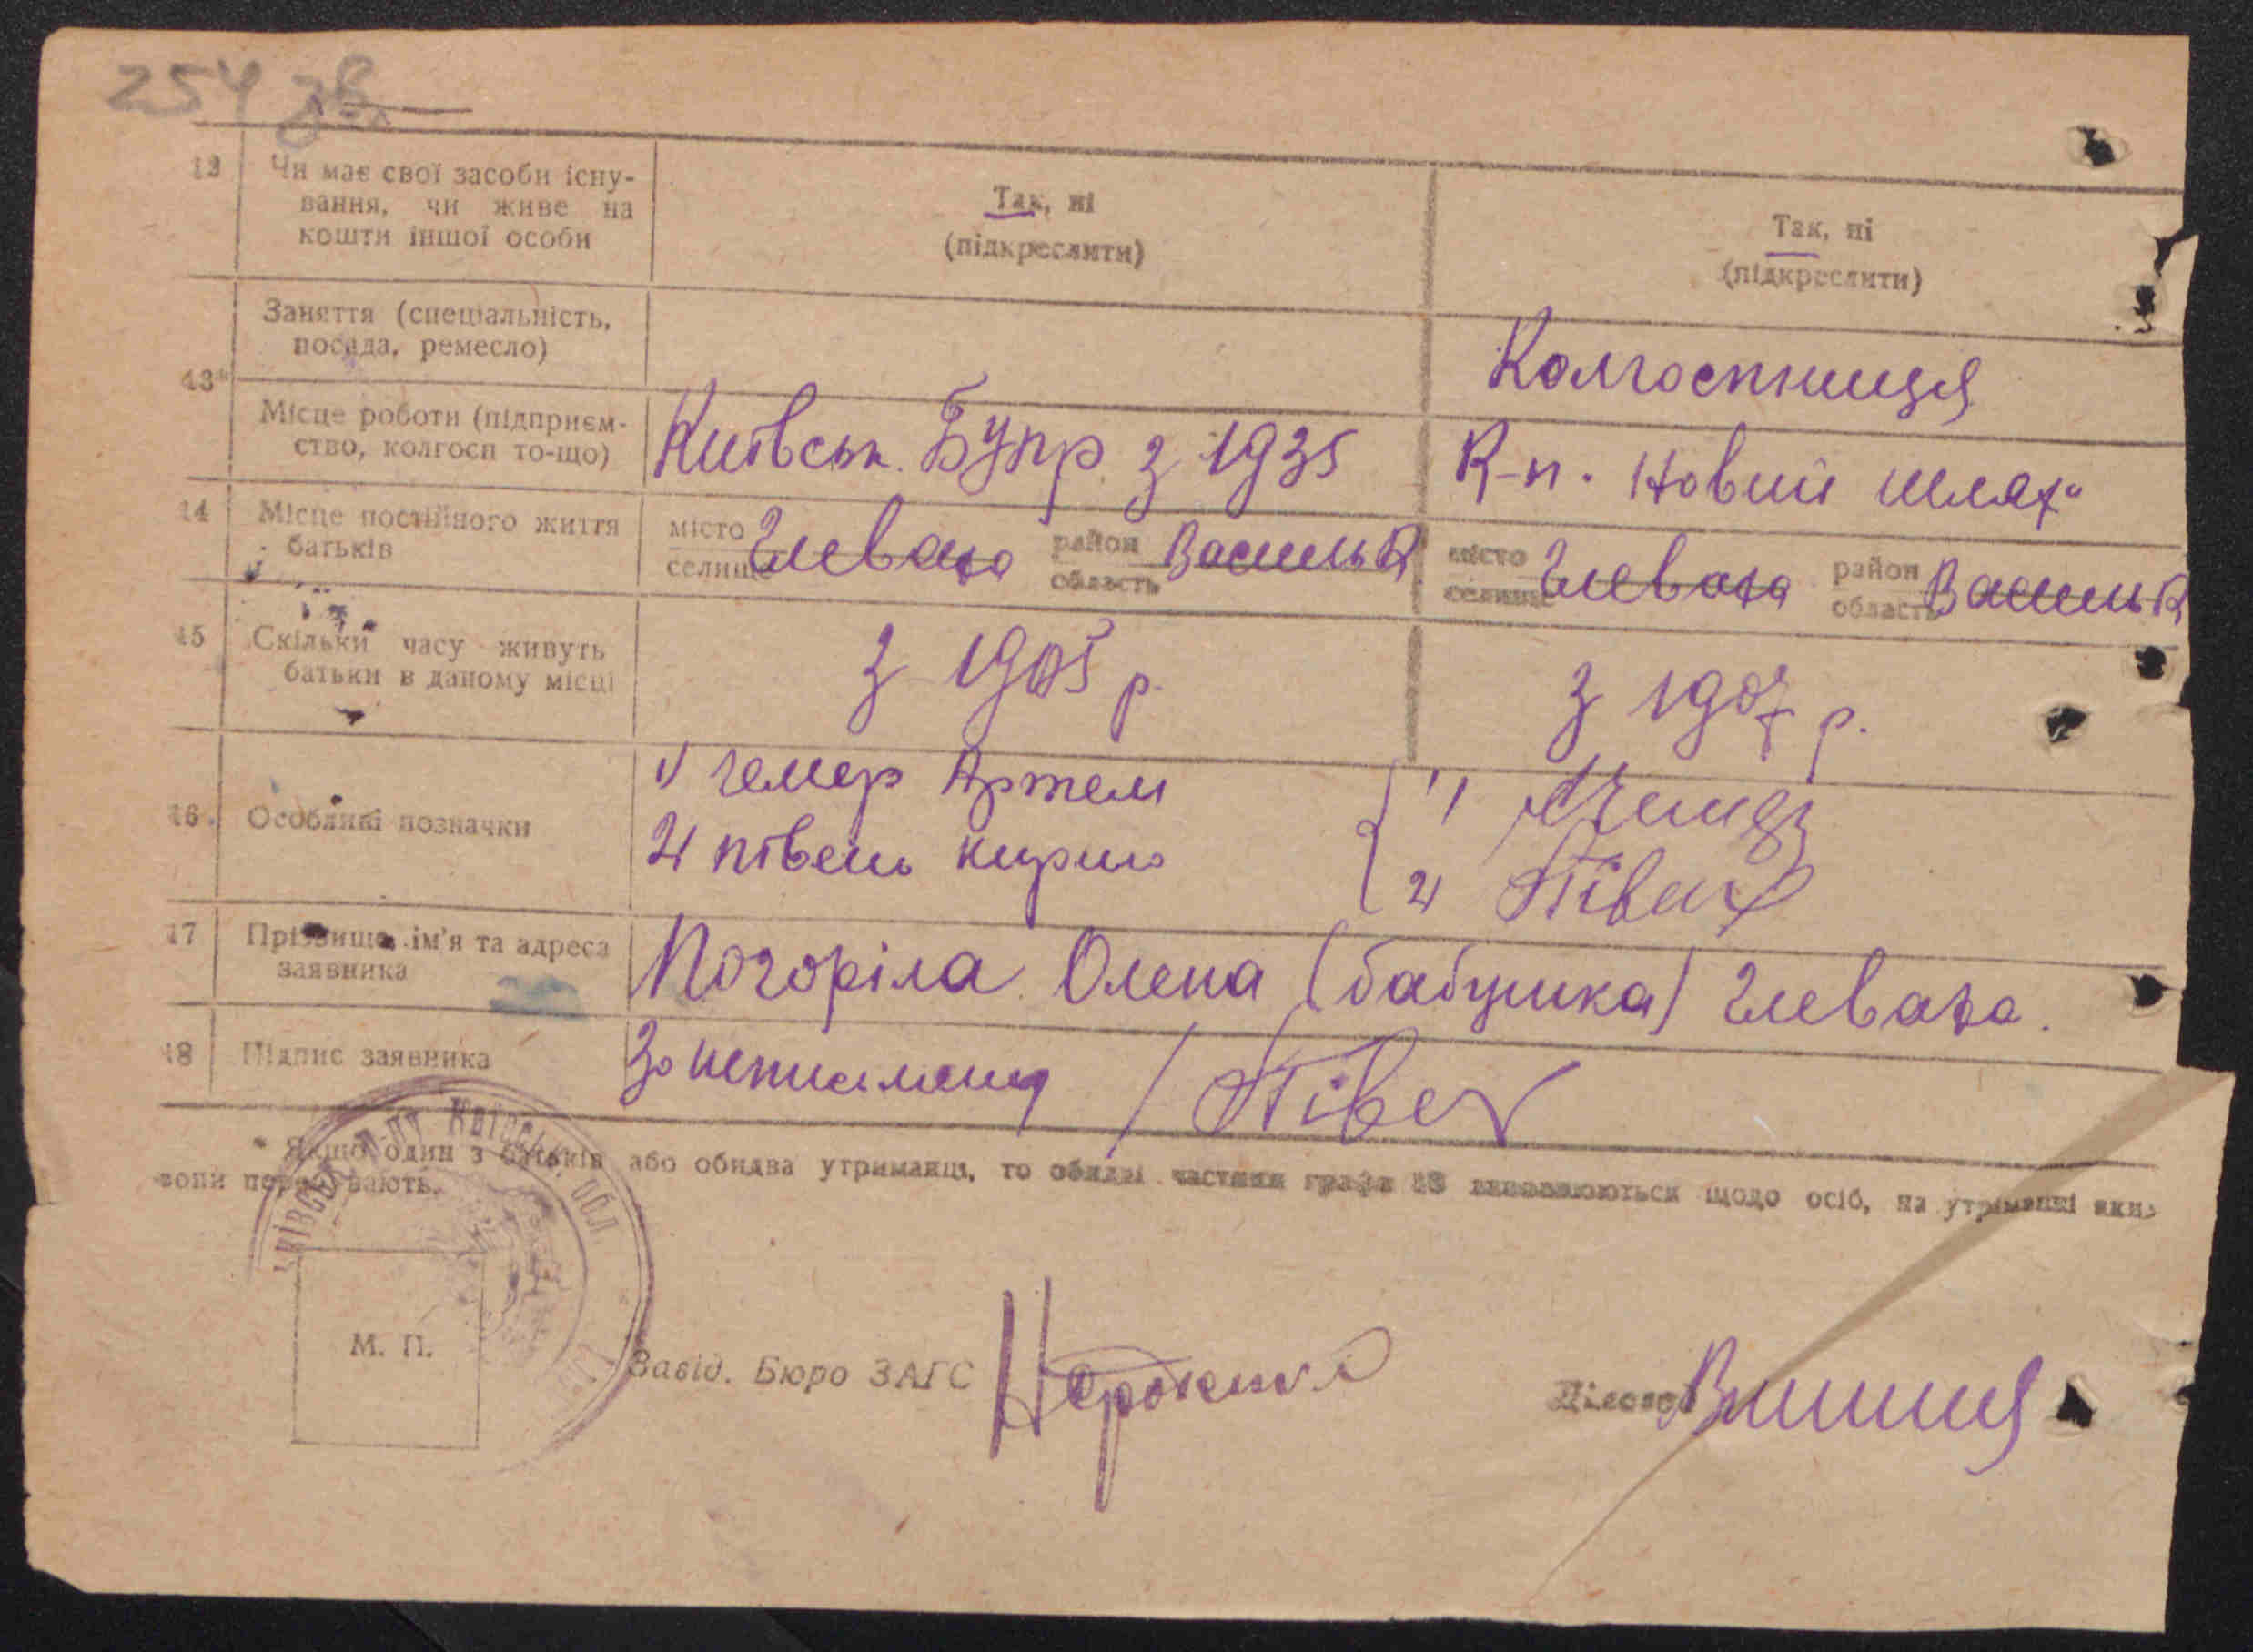 254 зв.
12 Чи має свої засоби існу-
вання, чи живе на
кошти іншої особи
Так, ні
(підкреслити)
Так, ні
(підкреслити)
13* Заняття (спеціальність,
посада, ремесло)
Колгоспниця
Місце роботи (підприєм-
ство, колгосп то-що)
Київськ. Бупр з 1935
К-п. Новий шлях"
14 Місце постійного життя
батьків
місто
селище Глеваха район
область Васильк
місто
селище Глеваха район
область Васильк
15 Скільки часу живуть
батьки в даному місці
з 1905 р.
з 1907 р.
16. Особливі позначки
1) Чемер Артем
2) півень кирило
1) Чемер
2) Півень
17 Прізвище, ім'я та адреса
заявника
Погоріла Олена (бабушка) Глеваха.
18 Підпис заявника
За неписьмену / Півен
* Якщо один з батьків або обидва утриманці, то обидві частини графи 13 виповнюються щодо осіб, на утриманні яких
вони перебувають.
М. П.
Завід. Бюро ЗАГС
Діловод